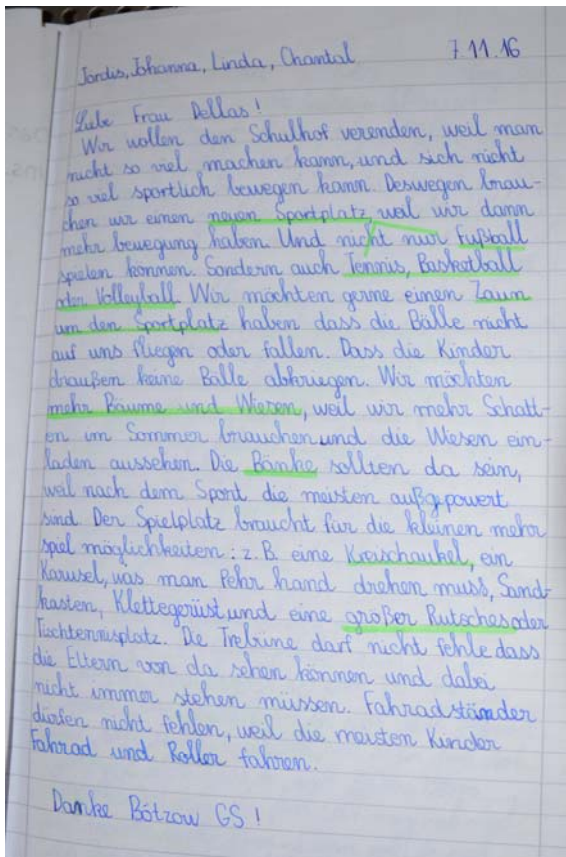 Jordis, Johanna, Linda, Chantal 7.11.16
Liebe Frau Dellas!
Wir wollen den Schulhof verenden, weil man
nicht so viel machen kann, und sich nicht
so viel sportlich bewegen kann. Deswegen brau-
chen wir einen neuen Sportplatz, weil wir dann
mehr bewegung haben. Und nicht nur Fußball
spielen können. Sondern auch Tennis, Basketball
oder Volleyball. Wir möchten gerne einen Zaun
um den Sportplatz haben dass die Bälle nicht
auf uns fliegen oder fallen. Dass die Kinder
draußen keine Bälle abkriegen. Wir möchten
mehr Bäume und Wiesen, weil wir mehr Schatt-
en im Sommer brauchen und die Wiesen ein-
laden aussehen. Die Bänke sollten da sein,
weil nach dem Sport die meisten außgepowert
sind. Der Spielplatz braucht für die kleinen mehr
spiel möglichkeiten: z.B. eine Kreuschaukel, ein
Karusel, was man Pehr hand drehen muss, Sand-
kasten, Klettegerüst und eine großer Rutsches oder
Tischtennisplatz. Die Trebune darf nicht fehle dass
die Eltern von da sehen können und dabei
nicht immer stehen müssen. Fahradständer
dürfen nicht fehlen, weil die meisten Kinder
Fahrad und Roller fahren.
Danke Bötzow GS!